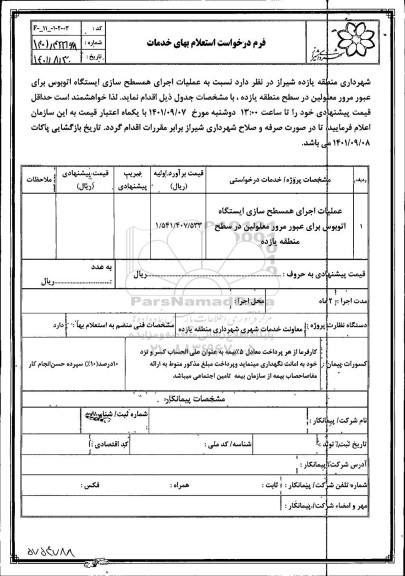 فرم درخواست استعلام بهای خدمات
کد :
شماره :
تاریخ :
شهرداری منطقه یازده شیراز در نظر دارد نسبت به عملیات اجرای همسطح سازی ایستگاه اتوبوس برای
عبور مرور معلولین در سطح منطقه یازده ، با مشخصات جدول ذیل اقدام نماید. لذا خواهشمند است حداقل
قیمت پیشنهادی خود را تا ساعت ۱۳:۰۰ دوشنبه مورخ ۱۴۰۱/۰۹/۰۷ با یکماه اعتبار قیمت به این سازمان
اعلام فرمایید، تا در صورت صرفه و صلاح شهرداری شیراز برابر مقررات اقدام گردد. تاریخ بازگشایی پاکات
۱۴۰۱/۰۹/۰۸ می باشد.
ردیف مشخصات پروژه/ خدمات درخواستی قیمت برآورد اولیه (ریال) ضریب پیشنهادی قیمت پیشنهادی (ریال) ملاحظات
۱ عملیات اجرای همسطح سازی ایستگاه اتوبوس برای عبور مرور معلولین در سطح منطقه یازده ۱/۵۴۱/۴۰۷/۵۳۳
قیمت پیشنهادی به حروف : ریال به عدد : ریال
مدت اجرا : ۲ ماه محل اجرا :
دستگاه نظارت پروژه : معاونت خدمات شهری شهرداری منطقه یازده مشخصات فنی منضم به استعلام بها : دارد
کسورات پیمان : کارفرما از هر پرداخت معادل ۵٪ بیمه به عنوان علی الحساب کسر و نزد
خود به امانت نگهداری مینماید وپرداخت مبلغ مذکور منوط به ارائه
مفاصاحساب بیمه از سازمان بیمه تامین اجتماعی میباشد
۱۰درصد(۱۰٪) سپرده حسن انجام کار
مشخصات پیمانکار:
نام شرکت/ پیمانکار : شماره ثبت/ شناسنامه :
تاریخ ثبت/ تولد : شناسه/ کد ملی : کد اقتصادی :
آدرس شرکت/ پیمانکار :
شماره تلفن شرکت/ پیمانکار : ثابت : همراه : فکس :
مهر و امضاء شرکت/ پیمانکار :
ParsNamadData